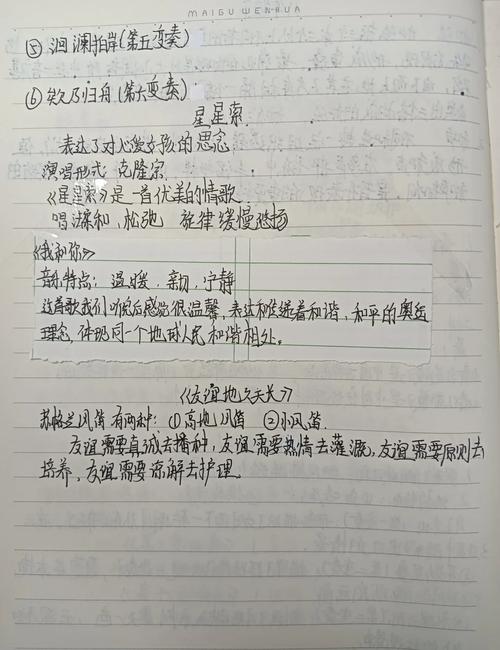 MAIGU WENHUA
⑤ 洄澜拍岸(第五变奏)
⑥ 欸乃归舟(第六变奏)
星星索
表达了对心爱女孩的思念
演唱形式 克隆宗
《星星索》是一首优美的情歌
唱法柔和,松弛 旋律缓慢悠扬
《我和你》
音乐特点:温暖,亲切,宁静
这首歌我们听完后感觉很温馨,表达和传递着和谐,和平的奥运
理念,体现同一个地球人民和谐相处。
《友谊地久天长》
苏格兰风笛有两种:①高地风笛 ②小风笛
友谊需要真诚去播种,友谊需要热情去灌溉,友谊需要原则去
培养,友谊需要谅解去护理